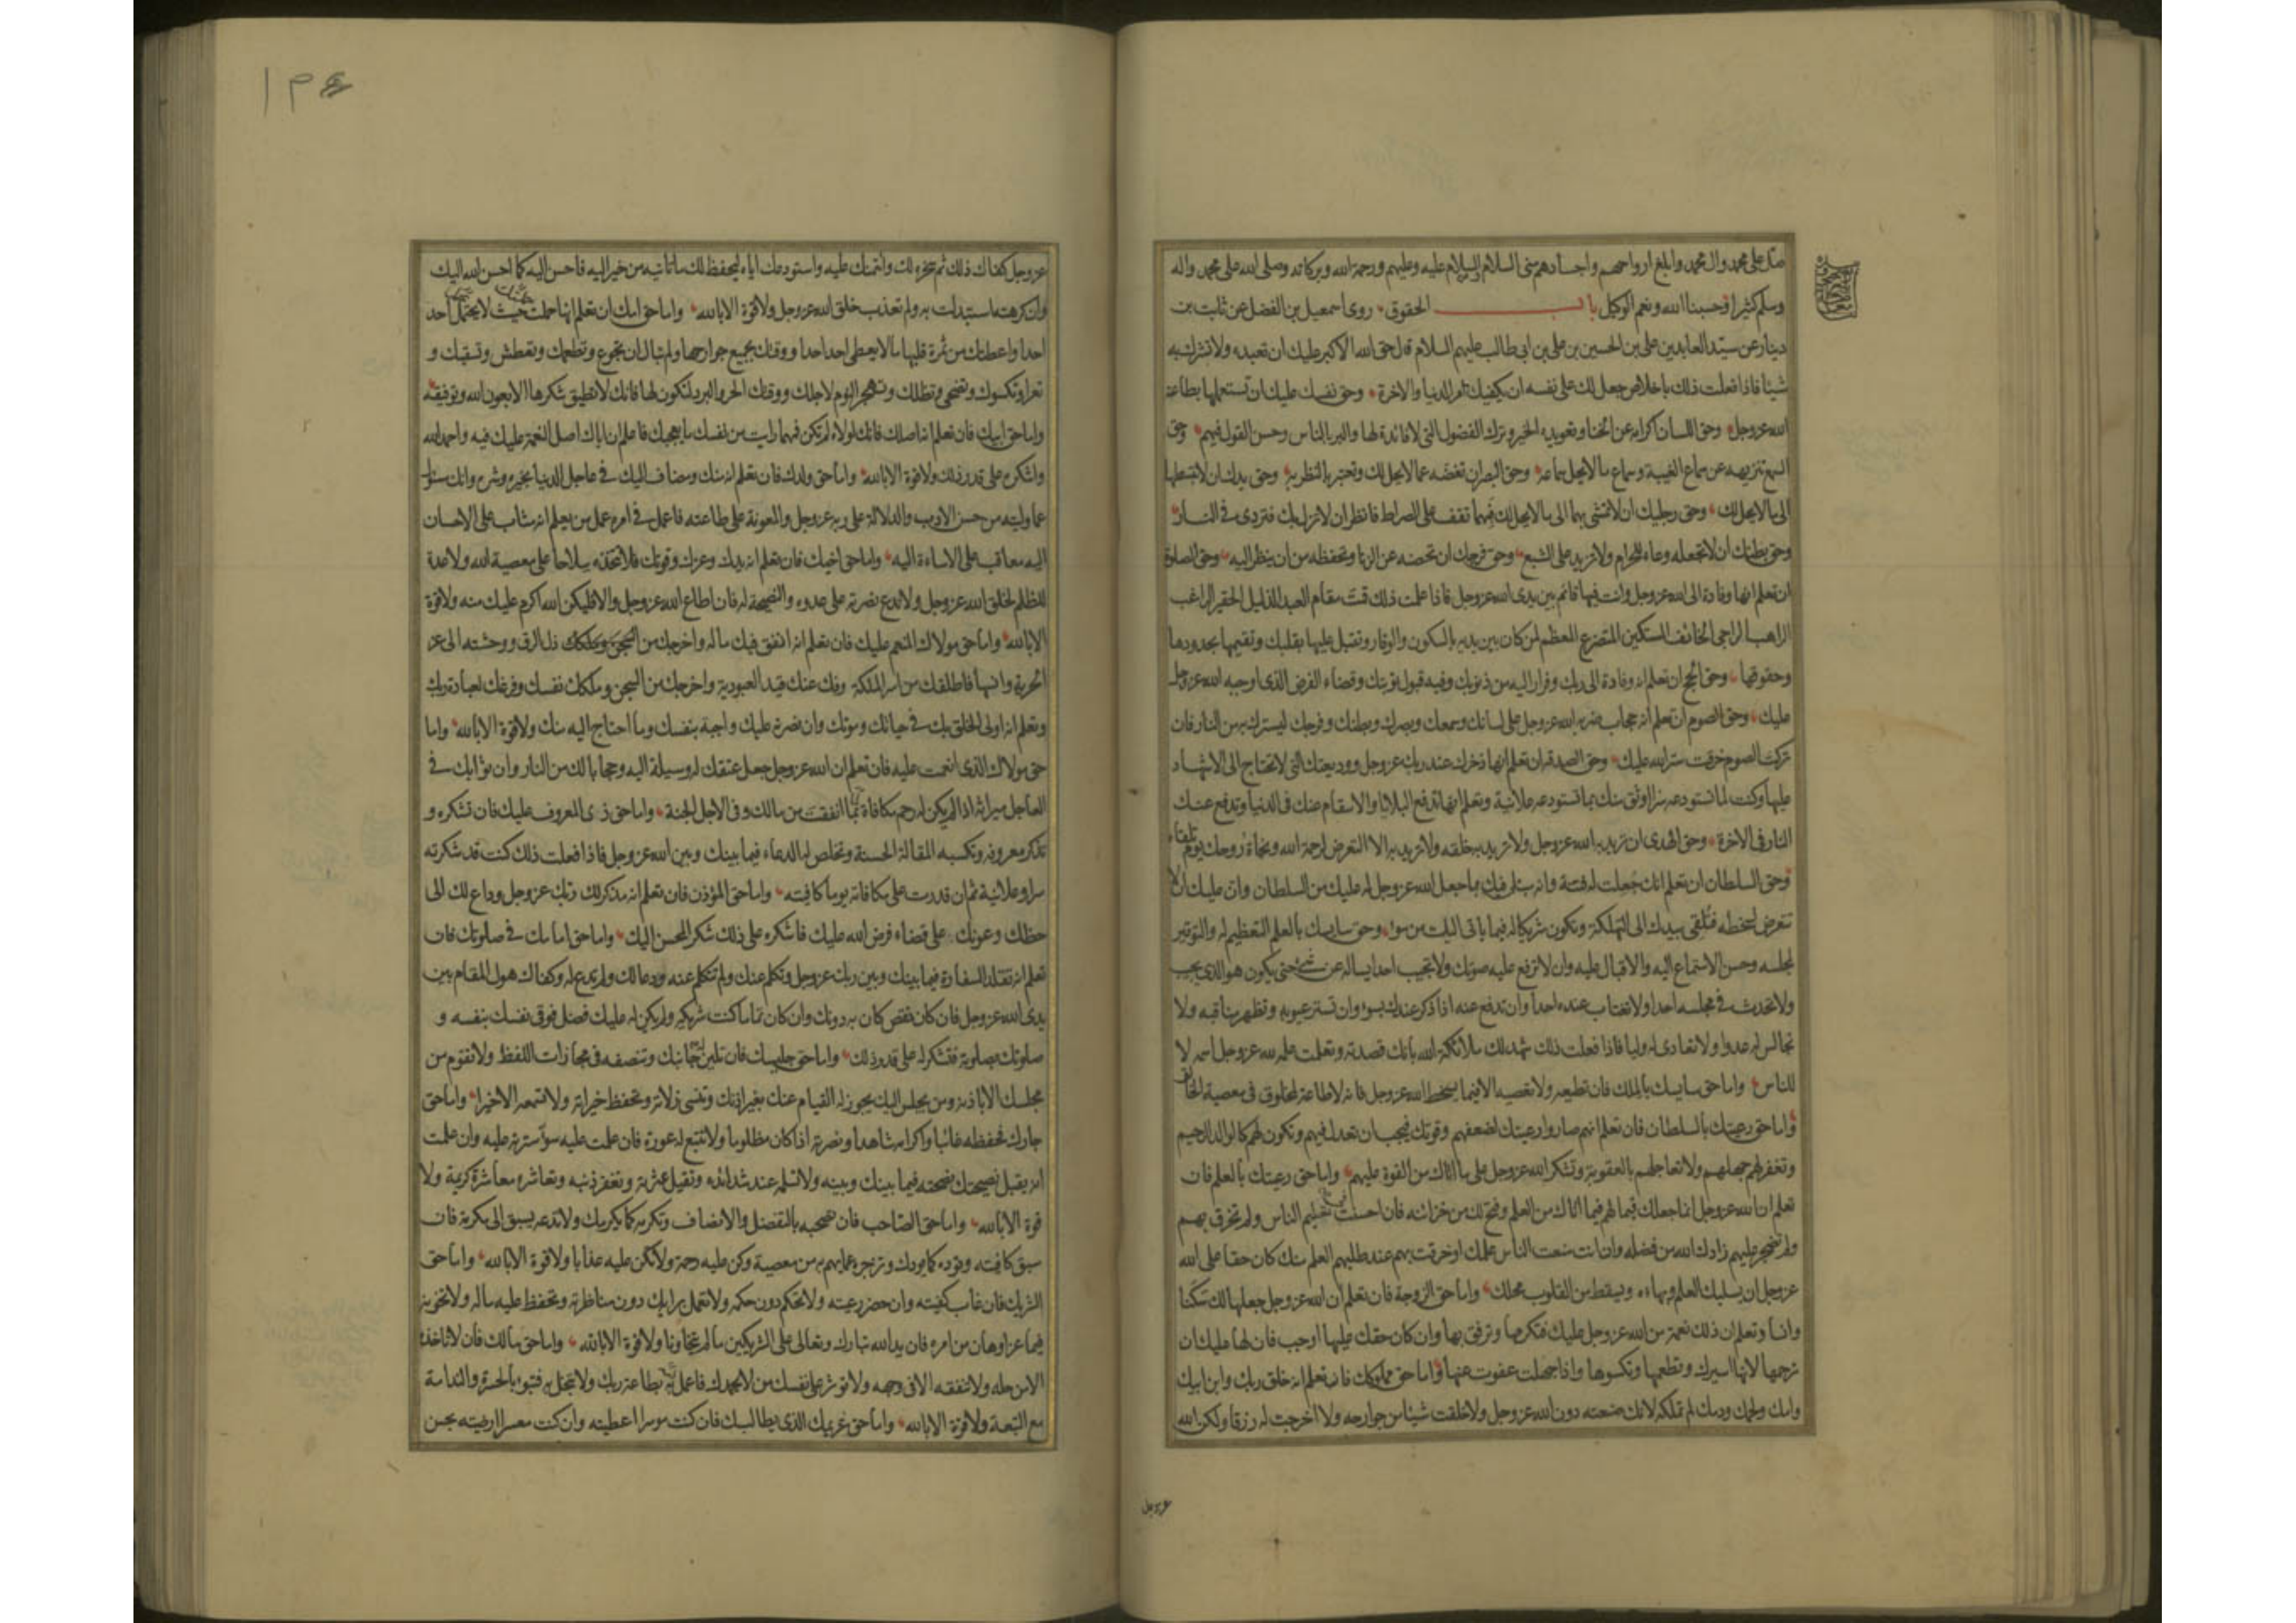 صل على محمد وال محمد وابلغ ارواحهم واجسادهم منى السلام والسلام عليه وعليهم ورحمة الله وبركاته وصلى الله على محمد واله
وسلم كثيرا وحسبنا الله ونعم الوكيل باب الحقوق روى اسمعيل بن الفضل عن ثابت بن
دينار عن سيد العابدين على بن الحسين بن على بن ابى طالب عليهم السلام قال حق الله الاكبر عليك ان تعبده ولا تشرك به
شيئا فاذا فعلت ذلك باخلاص جعل لك على نفسه ان يكفيك امر الدنيا والاخرة وحق نفسك عليك ان تستعملها بطاعة
الله عز وجل وحق اللسان اكرامه عن الخنا وتعويده الخير وترك الفضول التى لا فائدة لها والبر بالناس وحسن القول فيهم وحق
السمع تنزيهه عن سماع الغيبة وسماع ما لا يحل سماعه وحق البصر ان تغضه عما لا يحل لك وتعتبر بالنظر به وحق يدك ان لا تبسطها
الى ما لا يحل لك وحق رجليك ان لا تمشى بهما الى ما لا يحل لك فبهما تقف على الصراط فانظر ان لا تزل بك فتردى فى النار
وحق بطنك ان لا تجعله وعاء للحرام ولا تزيد على الشبع وحق فرجك ان تحصنه عن الزنا وتحفظه من ان ينظر اليه وحق الصلوة
ان تعلم انها وفادة الى الله عز وجل وانت فيها قائم بين يدى الله عز وجل فاذا علمت ذلك قمت مقام العبد الذليل الحقير الراغب
الراهب الراجى الخائف المستكين المتضرع المعظم لمن كان بين يديه بالسكون والوقار وتقبل عليها بقلبك وتقيمها بحدودها
وحقوقها وحق الحج ان تعلم انه وفادة الى ربك وفرار اليه من ذنوبك وفيه قبول توبتك وقضاء الفرض الذى اوجبه الله عز وجل
عليك وحق الصوم ان تعلم انه حجاب ضربه الله عز وجل على لسانك وسمعك وبصرك وبطنك وفرجك ليسترك به من النار فان
تركت الصوم خرقت ستر الله عليك وحق الصدقة ان تعلم انها ذخرك عند ربك عز وجل ووديعتك التى لا تحتاج الى الاشهاد
عليها وكنت لما تستودعه سرا اوثق منك بما تستودعه علانية وتعلم انها تدفع البلايا والاسقام عنك فى الدنيا وتدفع عنك
النار فى الاخرة وحق الهدى ان تريد به الله عز وجل ولا تريد به خلقه ولا تريد به الا التعرض لرحمة الله ونجاة روحك يوم تلقاه
وحق السلطان ان تعلم انك جعلت له فتنة وانه مبتلى فيك بما جعل الله عز وجل له عليك من السلطان وان عليك ان لا
تتعرض لسخطه فتلقى بيدك الى التهلكة وتكون شريكا له فيما ياتى اليك من سوء وحق سايسك بالعلم التعظيم له والتوقير
لمجلسه وحسن الاستماع اليه والاقبال عليه وان لا ترفع عليه صوتك ولا تجيب احدا يساله عن شئ حتى يكون هو الذى يجيب
ولا تحدث فى مجلسه احدا ولا تغتاب عنده احدا وان تدفع عنه اذا ذكر عندك بسوء وان تستر عيوبه وتظهر مناقبه ولا
تجالس له عدوا ولا تعادى له وليا فاذا فعلت ذلك شهد لك ملائكة الله بانك قصدته وتعلمت علمه لله عز وجل اسمه لا
للناس واما حق سايسك بالملك فان تطيعه ولا تعصيه الا فيما يسخط الله عز وجل فانه لا طاعة لمخلوق فى معصية الخالق
واما حق رعيتك بالسلطان فان تعلم انهم صاروا رعيتك لضعفهم وقوتك فيجب ان تعدل فيهم وتكون لهم كالوالد الرحيم
وتغفر لهم جهلهم ولا تعاجلهم بالعقوبة وتشكر الله عز وجل على ما اتاك من القوة عليهم واما حق رعيتك بالعلم فان
تعلم ان الله عز وجل انما جعلك قيما لهم فيما اتاك من العلم وفتح لك من خزائنه فان احسنت فى تعليم الناس ولم تخرق بهم
ولم تضجر عليهم زادك الله من فضله وان انت منعت الناس علمك او خرقت بهم عند طلبهم العلم منك كان حقا على الله
عز وجل ان يسلبك العلم وبهاءه ويسقط من القلوب محلك واما حق الزوجة فان تعلم ان الله عز وجل جعلها لك سكنا
وانسا وتعلم ان ذلك نعمة من الله عز وجل عليك فتكرمها وترفق بها وان كان حقك عليها اوجب فان لها عليك ان
ترحمها لانها اسيرك وتطعمها وتكسوها واذا جهلت عفوت عنها واما حق مملوكك فان تعلم انه خلق ربك وابن ابيك
وامك ولحمك ودمك لم تملكه لانك صنعته دون الله عز وجل ولا خلقت شيئا من جوارحه ولا اخرجت له رزقا ولكن الله
عز وجل
۱۳۶
عز وجل كفاك ذلك ثم سخره لك وائتمنك عليه واستودعك اياه ليحفظ لك ما تاتيه من خير اليه فاحسن اليه كما احسن الله اليك
وان كرهته استبدلت به ولم تعذب خلق الله عز وجل ولا قوة الا بالله واما حق امك ان تعلم انها حملتك حيث لا يحتمل احد
احدا واعطتك من ثمرة قلبها ما لا يعطى احد احدا ووقتك بجميع جوارحها ولم تبال ان تجوع وتطعمك وتعطش وتسقيك و
تعرا وتكسوك وتضحى وتظلك وتهجر النوم لاجلك ووقتك الحر والبرد لتكون لها فانك لا تطيق شكرها الا بعون الله وتوفيقه
واما حق ابيك فان تعلم انه اصلك فانك لولاه لم تكن فمهما رايت من نفسك ما يعجبك فاعلم ان اباك اصل النعمة عليك فيه واحمد الله
واشكره على قدر ذلك ولا قوة الا بالله واما حق ولدك فان تعلم انه منك ومضاف اليك فى عاجل الدنيا بخيره وشره وانك مسئول
عما وليته من حسن الادب والدلالة على ربه عز وجل والمعونة على طاعته فاعمل فى امره عمل من يعلم انه مثاب على الاحسان
اليه معاقب على الاساءة اليه واما حق اخيك فان تعلم انه يدك وعزك وقوتك فلا تتخذه سلاحا على معصية الله ولا عدة
للظلم لخلق الله عز وجل ولا تدع نصرته على عدوه والنصيحة له فان اطاع الله عز وجل والا فليكن الله اكرم عليك منه ولا قوة
الا بالله واما حق مولاك المنعم عليك فان تعلم انه انفق فيك ماله واخرجك من ذل الرق ووحشته الى عز
الحرية وانسها فاطلقك من اسر الملكة وفك عنك قيد العبودية واخرجك من السجن وملكك نفسك وفرغك لعبادة ربك
وتعلم انه اولى الخلق بك فى حياتك وموتك وان نصرته عليك واجبة بنفسك وما احتاج اليه منك ولا قوة الا بالله واما
حق مولاك الذى انعمت عليه فان تعلم ان الله عز وجل جعل عتقك له وسيلة اليه وحجابا لك من النار وان ثوابك فى
العاجل ميراثه اذا لم يكن له رحم مكافاة بما انفقت من مالك وفى الاجل الجنة واما حق ذى المعروف عليك فان تشكره و
تذكر معروفه وتكسبه المقالة الحسنة وتخلص له الدعاء فيما بينك وبين الله عز وجل فاذا فعلت ذلك كنت قد شكرته
سرا وعلانية ثم ان قدرت على مكافاته يوما كافيته واما حق المؤذن فان تعلم انه مذكر لك ربك عز وجل وداع لك الى
حظك وعونك على قضاء فرض الله عليك فاشكره على ذلك شكر المحسن اليك واما حق امامك فى صلوتك فان
تعلم انه تقلد السفارة فيما بينك وبين ربك عز وجل وتكلم عنك ولم تتكلم عنه ودعا لك ولم تدع له وكفاك هول المقام بين
يدى الله عز وجل فان كان نقص كان به دونك وان كان تماما كنت شريكه ولم يكن له عليك فضل فوقى نفسك بنفسه و
صلوتك بصلوته فتشكر له على قدر ذلك واما حق جليسك فان تلين له جانبك وتنصفه فى مجازات اللفظ ولا تقوم من
مجلسك الا باذنه ومن يجلس اليك يجوز له القيام عنك بغير اذنك وتنسى زلاته وتحفظ خيراته ولا تسمعه الا خيرا واما حق
جارك فحفظه غائبا واكرامه شاهدا ونصرته اذا كان مظلوما ولا تتبع له عورة فان علمت عليه سوءا سترته عليه وان علمت
انه يقبل نصيحتك نصحته فيما بينك وبينه ولا تسلمه عند شدائده وتقيل عثرته وتغفر ذنبه وتعاشره معاشرة كريمة ولا
قوة الا بالله واما حق الصاحب فان تصحبه بالتفضل والانصاف وتكرمه كما يكرمك ولا تدعه يسبق الى مكرمة فان
سبق كافيته وتوده كما يودك وتزجره عما يهم به من معصية وكن عليه رحمة ولا تكن عليه عذابا ولا قوة الا بالله واما حق
الشريك فان غاب كفيته وان حضر رعيته ولا تحكم دون حكمه ولا تعمل برايك دون مناظرته وتحفظ عليه ماله ولا تخونه
فيما عز او هان من امره فان يد الله تبارك وتعالى على الشريكين ما لم يتخاونا ولا قوة الا بالله واما حق مالك فان لا تاخذه
الا من حله ولا تنفقه الا فى وجهه ولا تؤثر على نفسك من لا يحمدك فاعمل به بطاعة ربك ولا تبخل به فتبوء بالحسرة والندامة
مع التبعة ولا قوة الا بالله واما حق غريمك الذى يطالبك فان كنت موسرا اعطيته وان كنت معسرا ارضيته بحسن